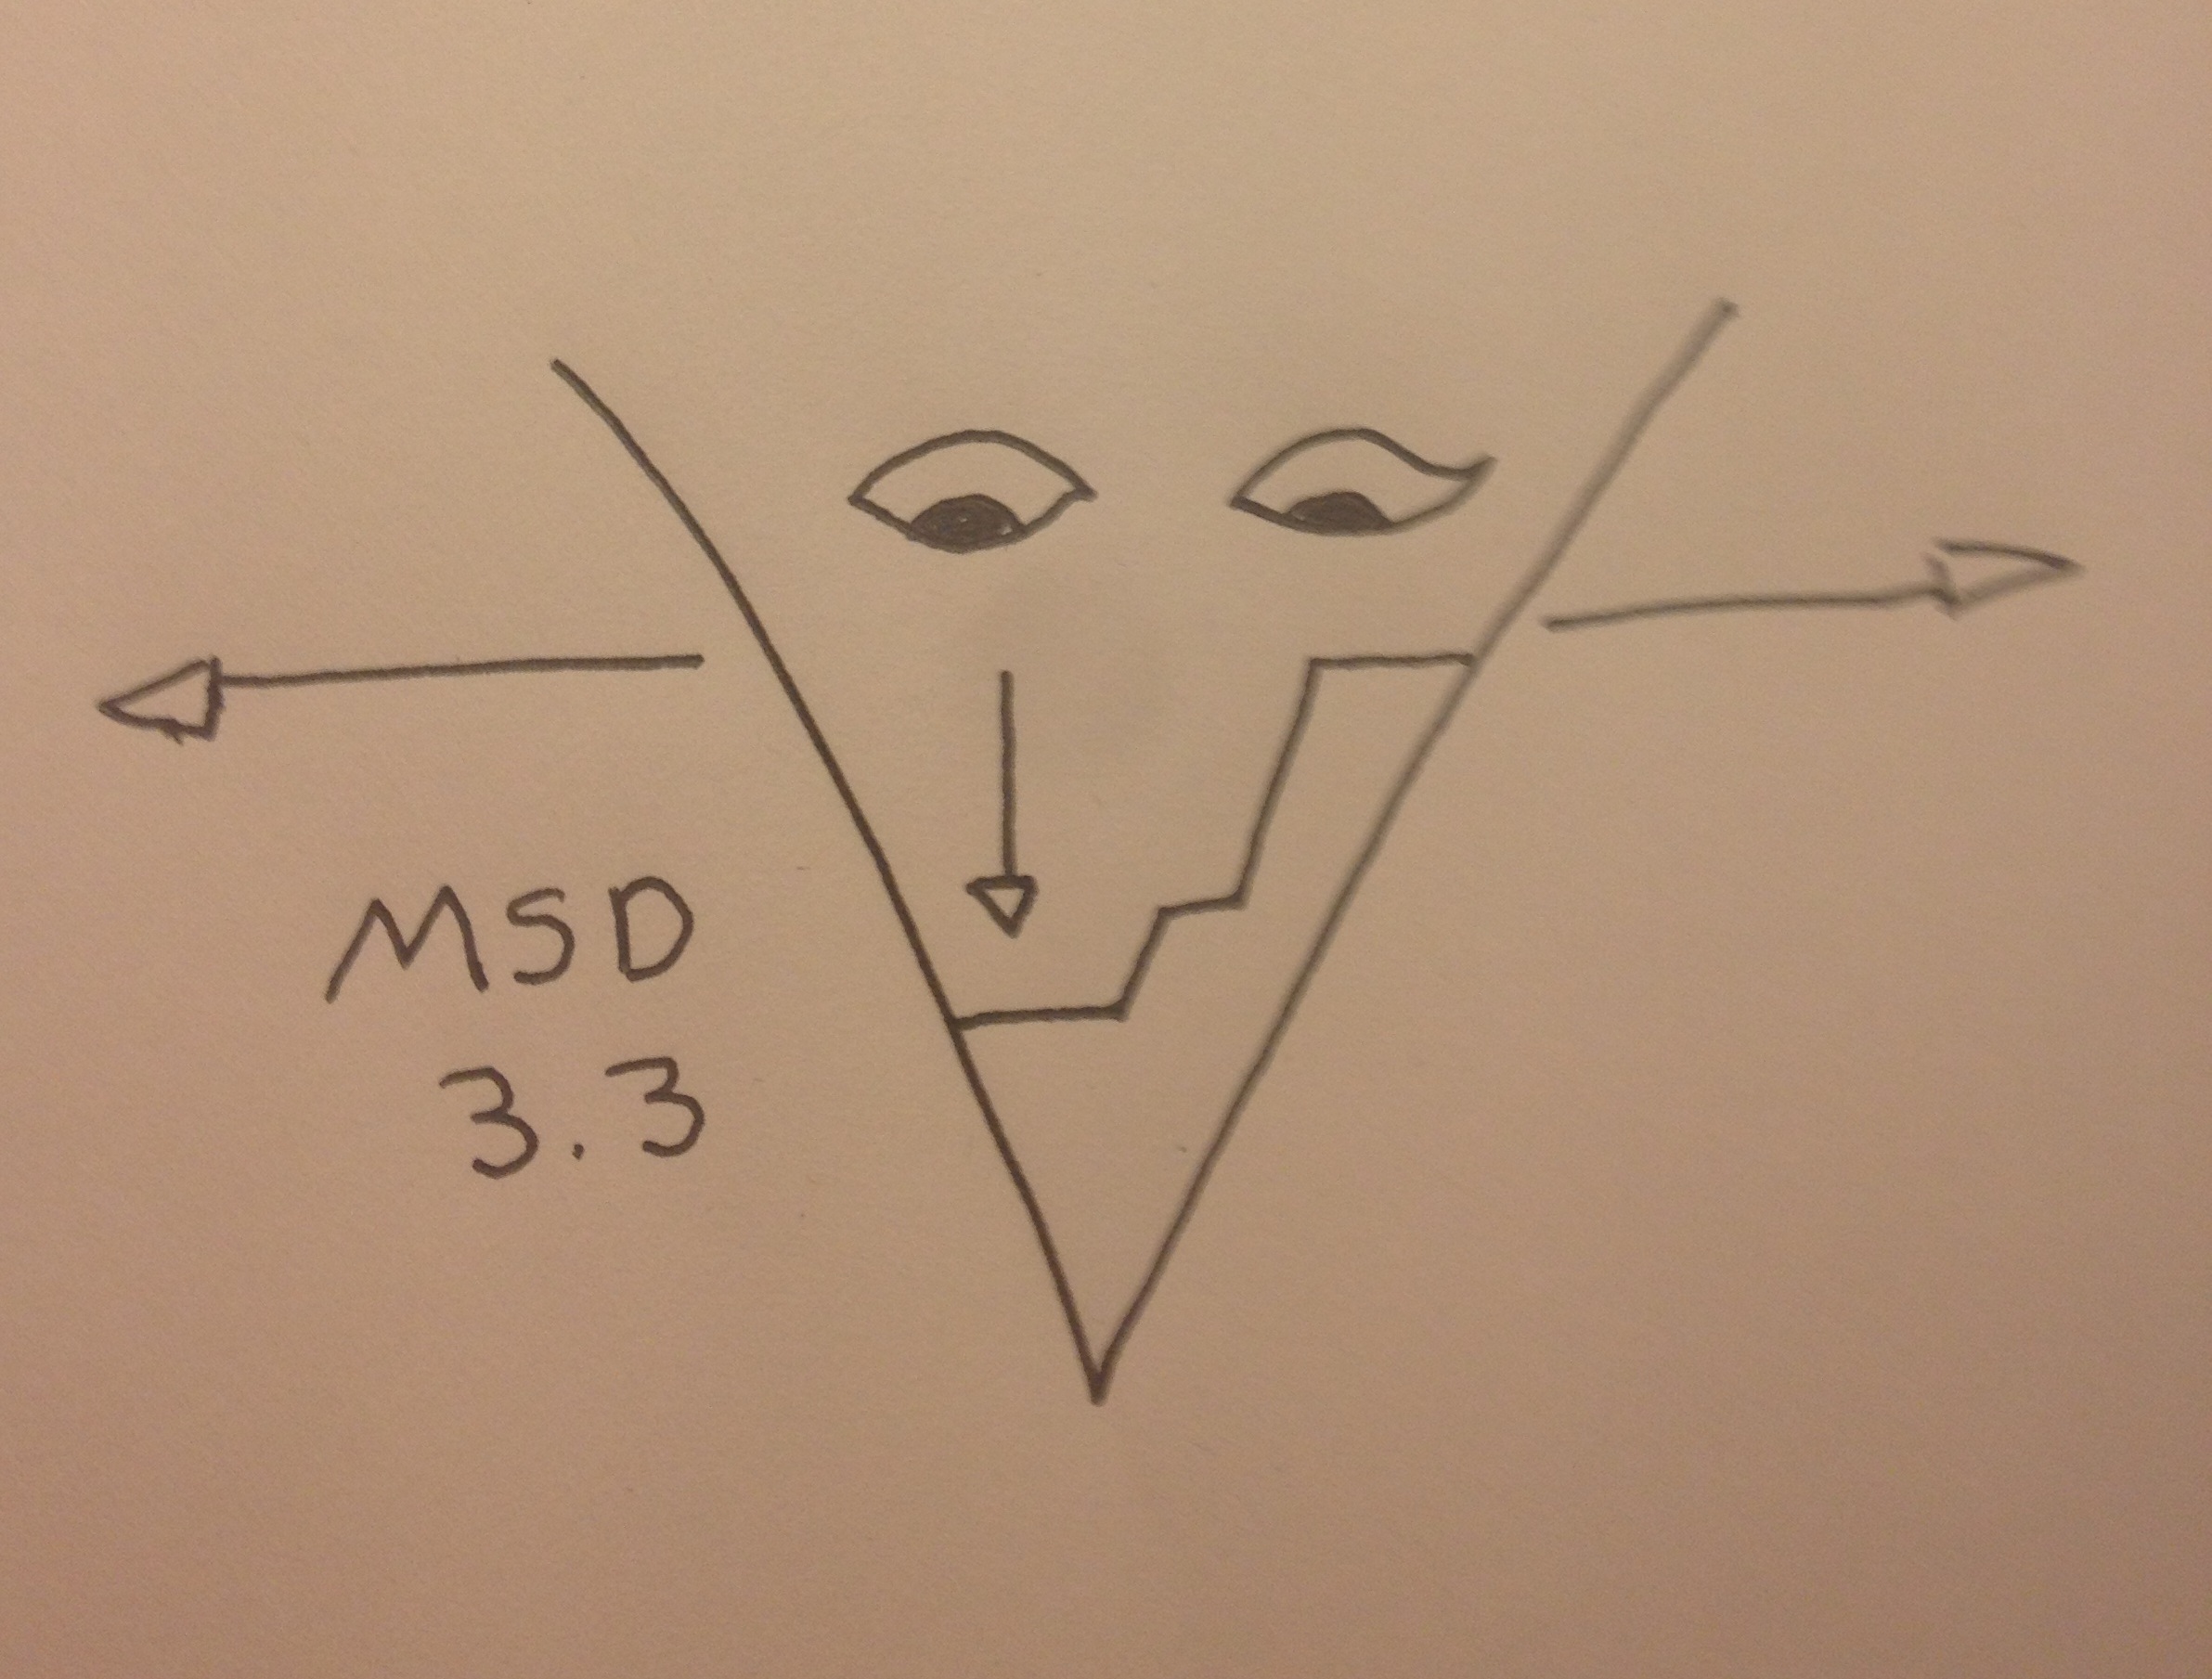 MSD
3.3